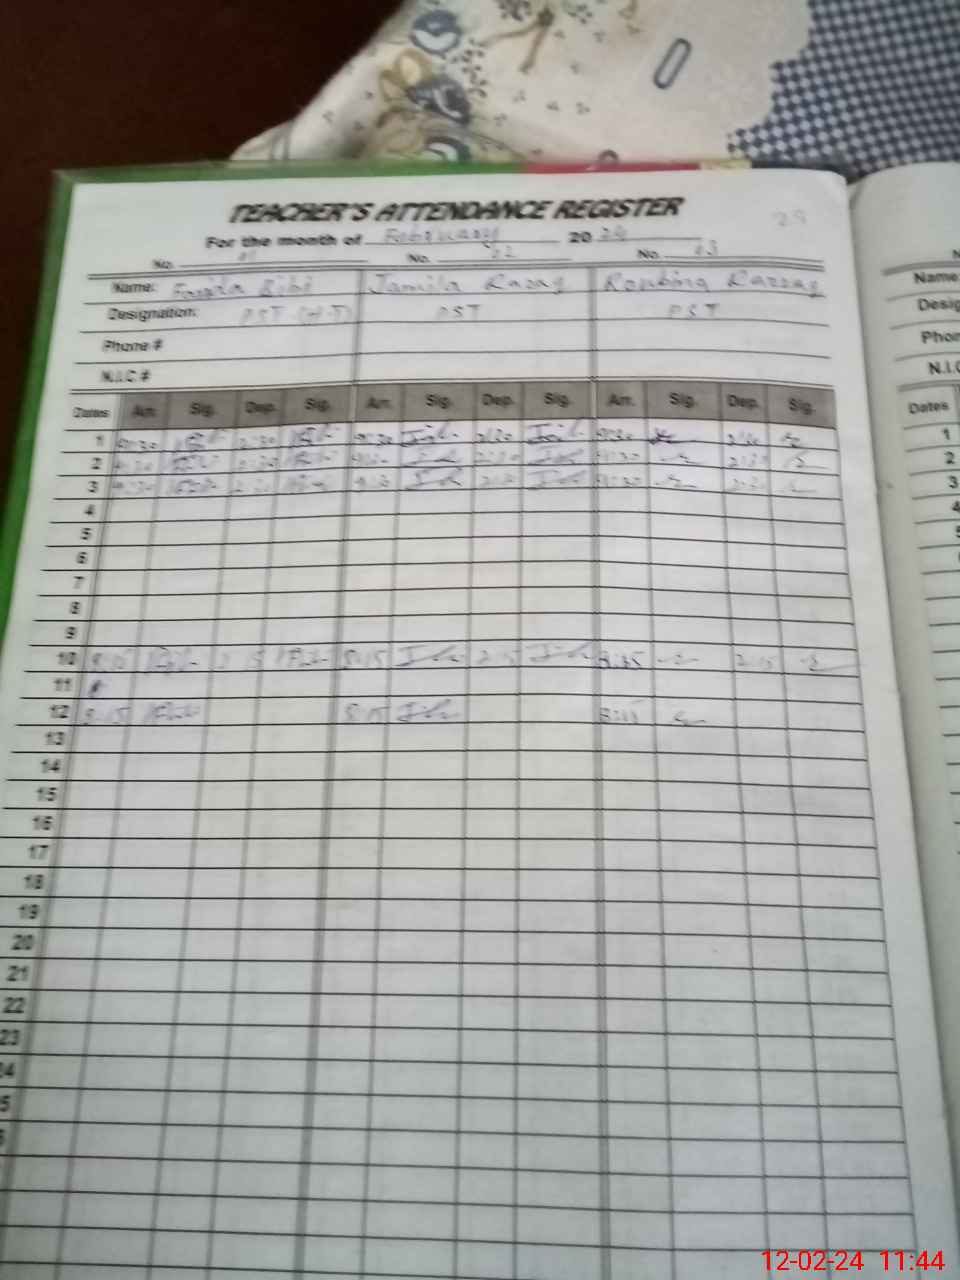 25
TEACHER'S ATTENDANCE REGISTER
For the month of February 2024
No. 01 No. 02 No. 03
Name: Farida Bibi Jamila Razaq Roubina Razzaq
Designation: PST (H.T) PST PST
Phone #
N.I.C #
Dates Arr. Sig. Dep. Sig. Arr. Sig. Dep. Sig. Arr. Sig. Dep. Sig.
1 9:30 2:30 9:30 2:30 9:30 2:30
2 9:30 2:30 2:30 9:30 2:30
3 9:30 2:30 2:30 9:30 2:30
4
5
6
7
8
9
10 8:15 2:15 8:15 2:15 2:15
11
12 8:15 8:15 8:15
13
14
15
16
17
18
19
20
21
22
23
Name
Desig
Phon
N.I.C
Dates
1
2
3
4
5
12-02-24 11:44